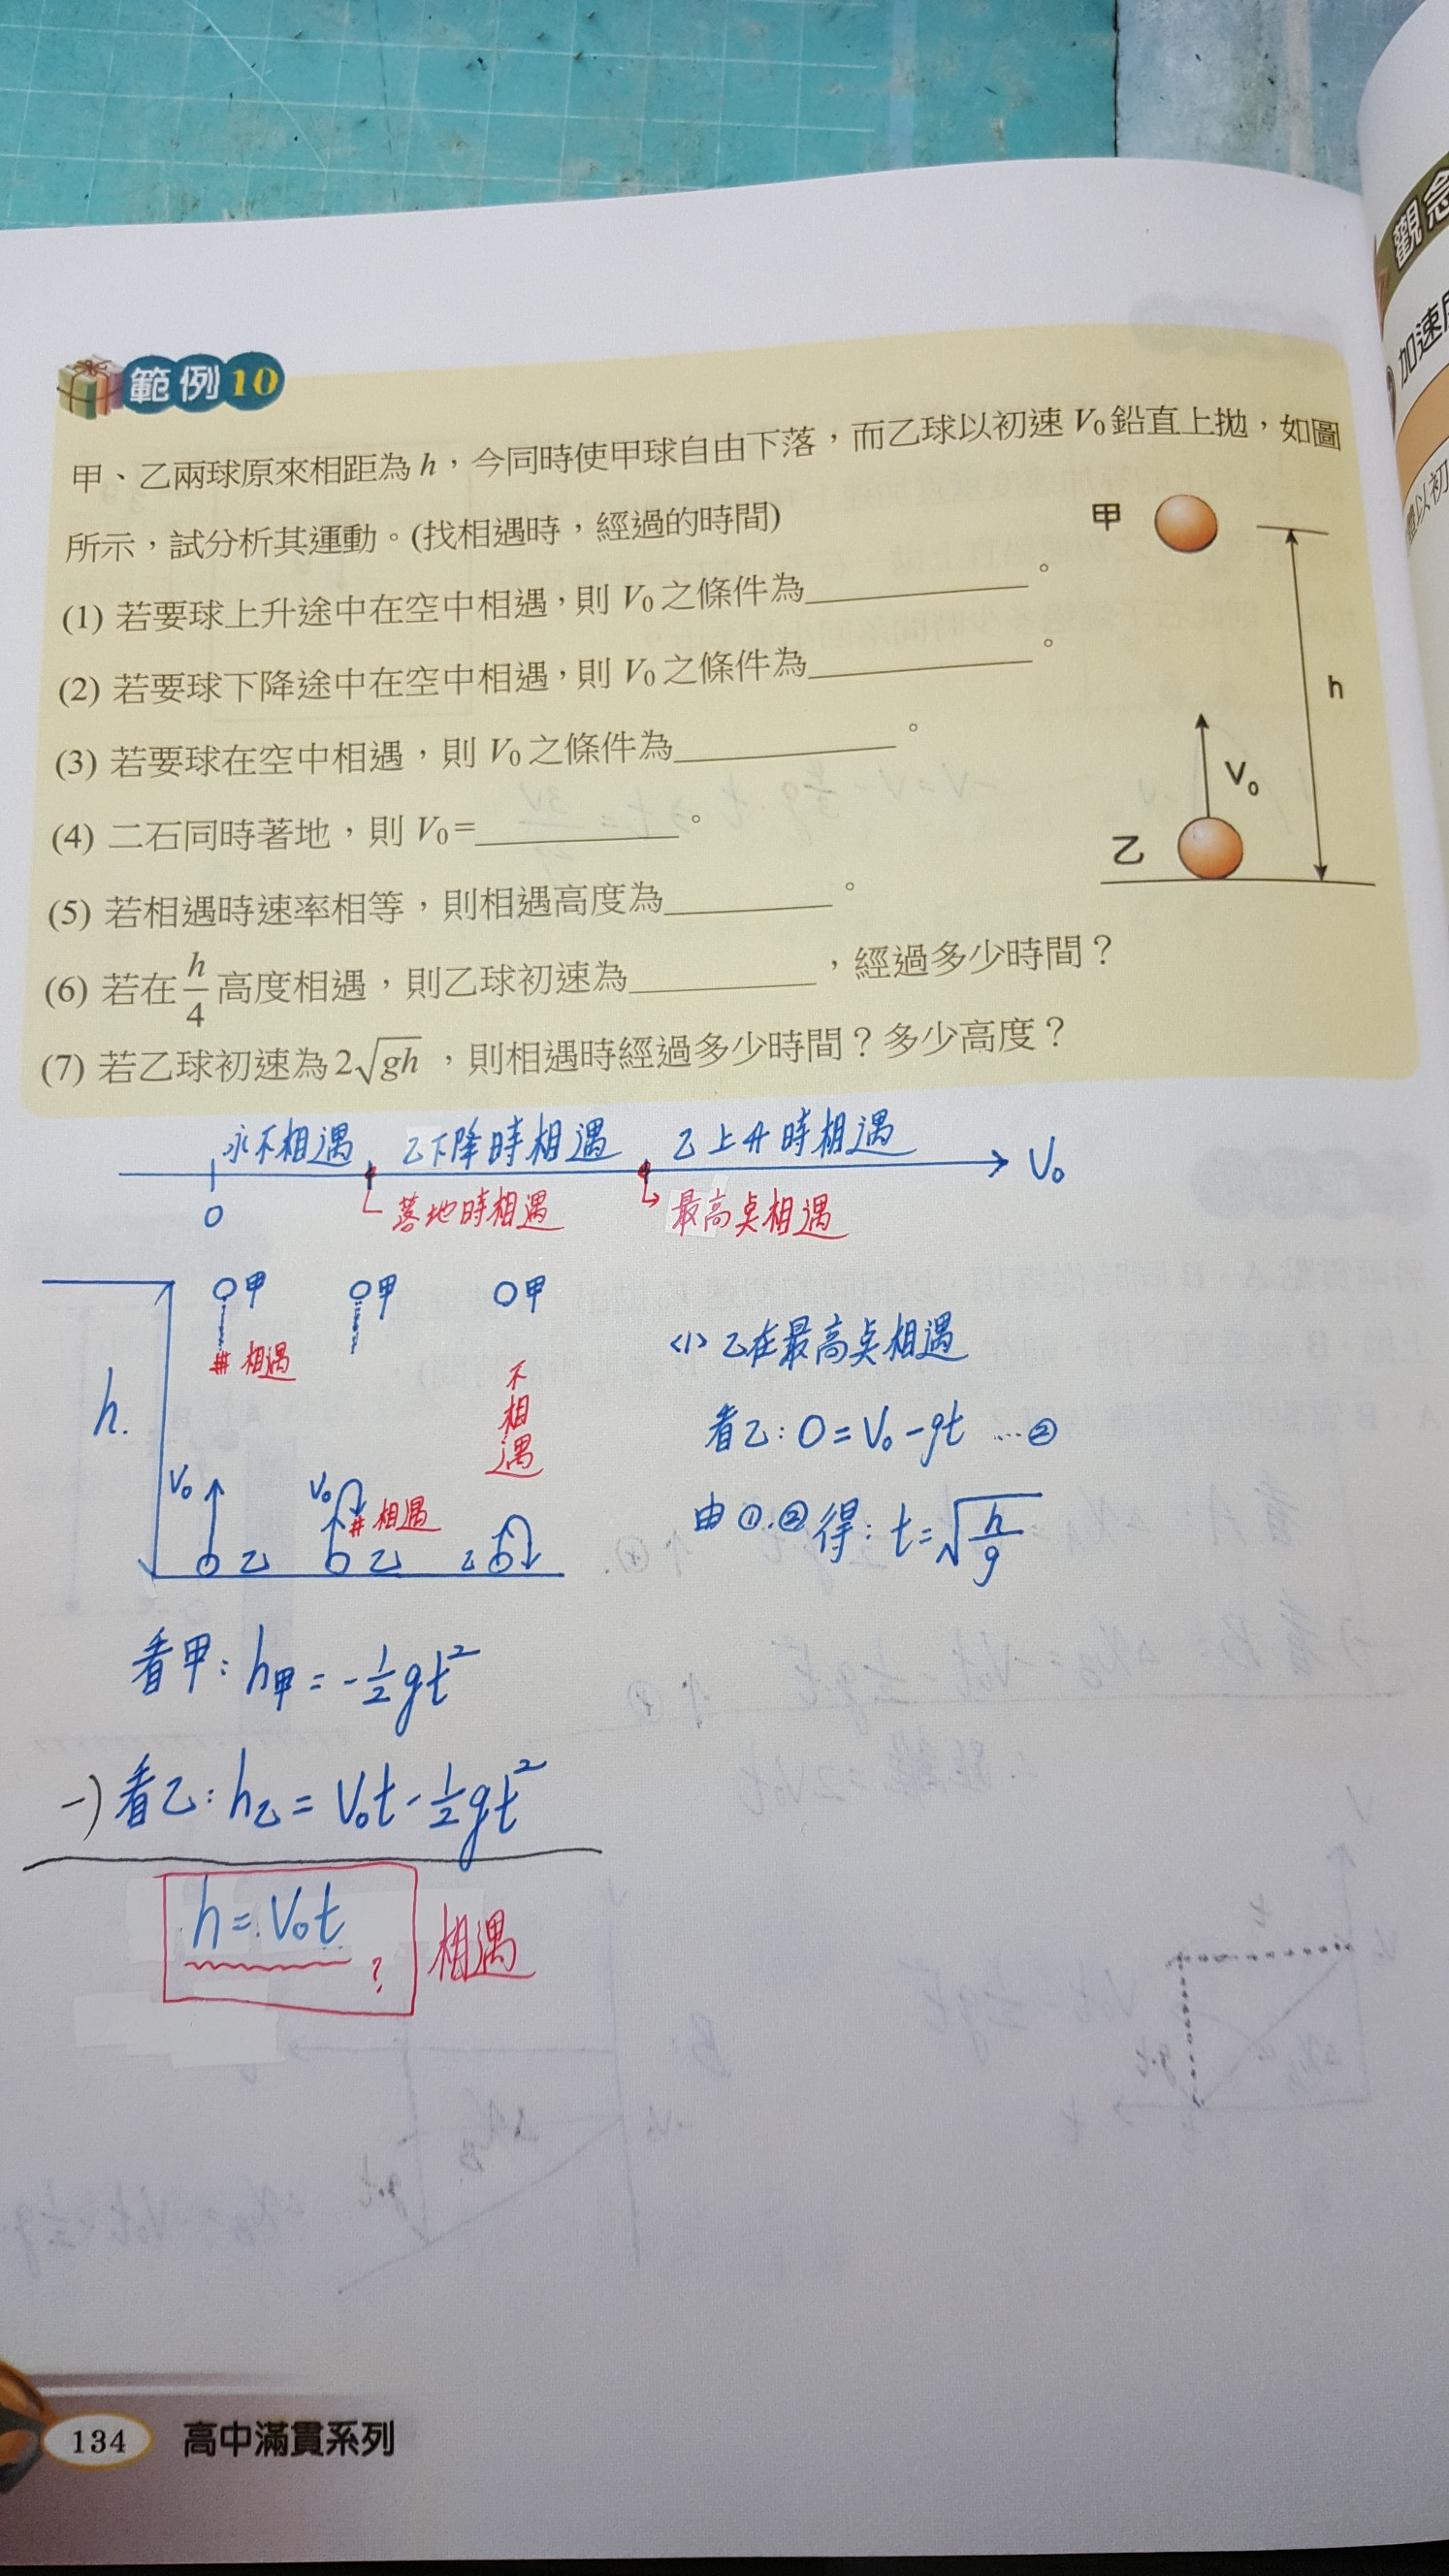 觀念
加速
體以初
範例10
甲、乙兩球原來相距為 h，今同時使甲球自由下落，而乙球以初速 V₀ 鉛直上拋，如圖
所示，試分析其運動。(找相遇時，經過的時間)
(1) 若要球上升途中在空中相遇，則 V₀ 之條件為__________。
(2) 若要球下降途中在空中相遇，則 V₀ 之條件為__________。
(3) 若要球在空中相遇，則 V₀ 之條件為__________。
(4) 二石同時著地，則 V₀=__________。
(5) 若相遇時速率相等，則相遇高度為__________。
(6) 若在 h/4 高度相遇，則乙球初速為__________，經過多少時間？
(7) 若乙球初速為 2√gh，則相遇時經過多少時間？多少高度？
甲
h
V₀
乙
永不相遇 乙下降時相遇 乙上升時相遇 V₀
0 落地時相遇 最高點相遇
甲 甲 甲
相遇
不相遇
h.
V₀ V₀ 相遇
乙 乙 乙
<1> 乙在最高點相遇
看乙: 0=V₀-gt …②
由①.②得: t=√(h/g)
看甲: h甲=-½gt²
-) 看乙: h乙=V₀t-½gt²
h=V₀t ? 相遇
134 高中滿貫系列